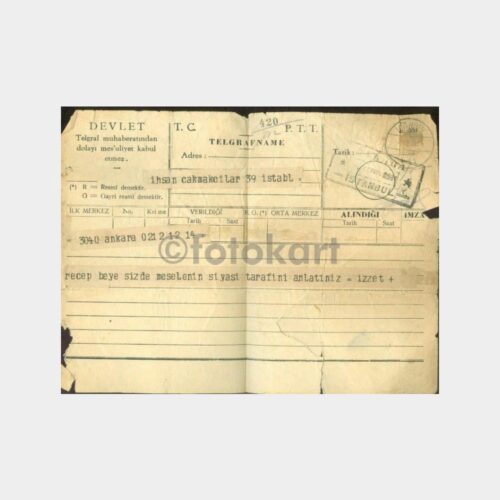 DEVLET
Telgraf muhaberatından
dolayı mes'uliyet kabul
etmez.
T. C.
420
P. T. T.
TELGRAFNAME
Adres :
Tarih:
İSTANBUL
ihsan cakmakcilar 39 istabl .
(*) R = Resmî demektir.
G = Gayri resmî demektir.
İLK MERKEZ No. Kelime VERİLDİĞİ R. G. (*) ORTA MERKEZ ALINDIĞI İMZA
Tarih Saat Tarih Saat
3040 ankara 0212 12 14
©fotokart
recep beye sizde meselenin siyasi tarafini anlatiniz = izzet +